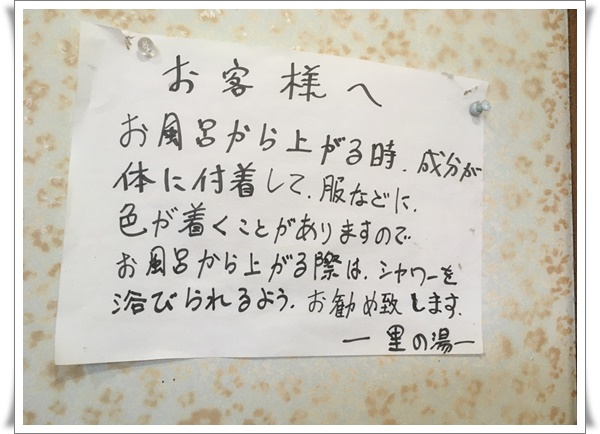 お客様へ
お風呂から上がる時、成分が
体に付着して、服などに、
色が着くことがありますので
お風呂から上がる際は、シャワーを
浴びられるよう、お勧め致します。
ー里の湯ー